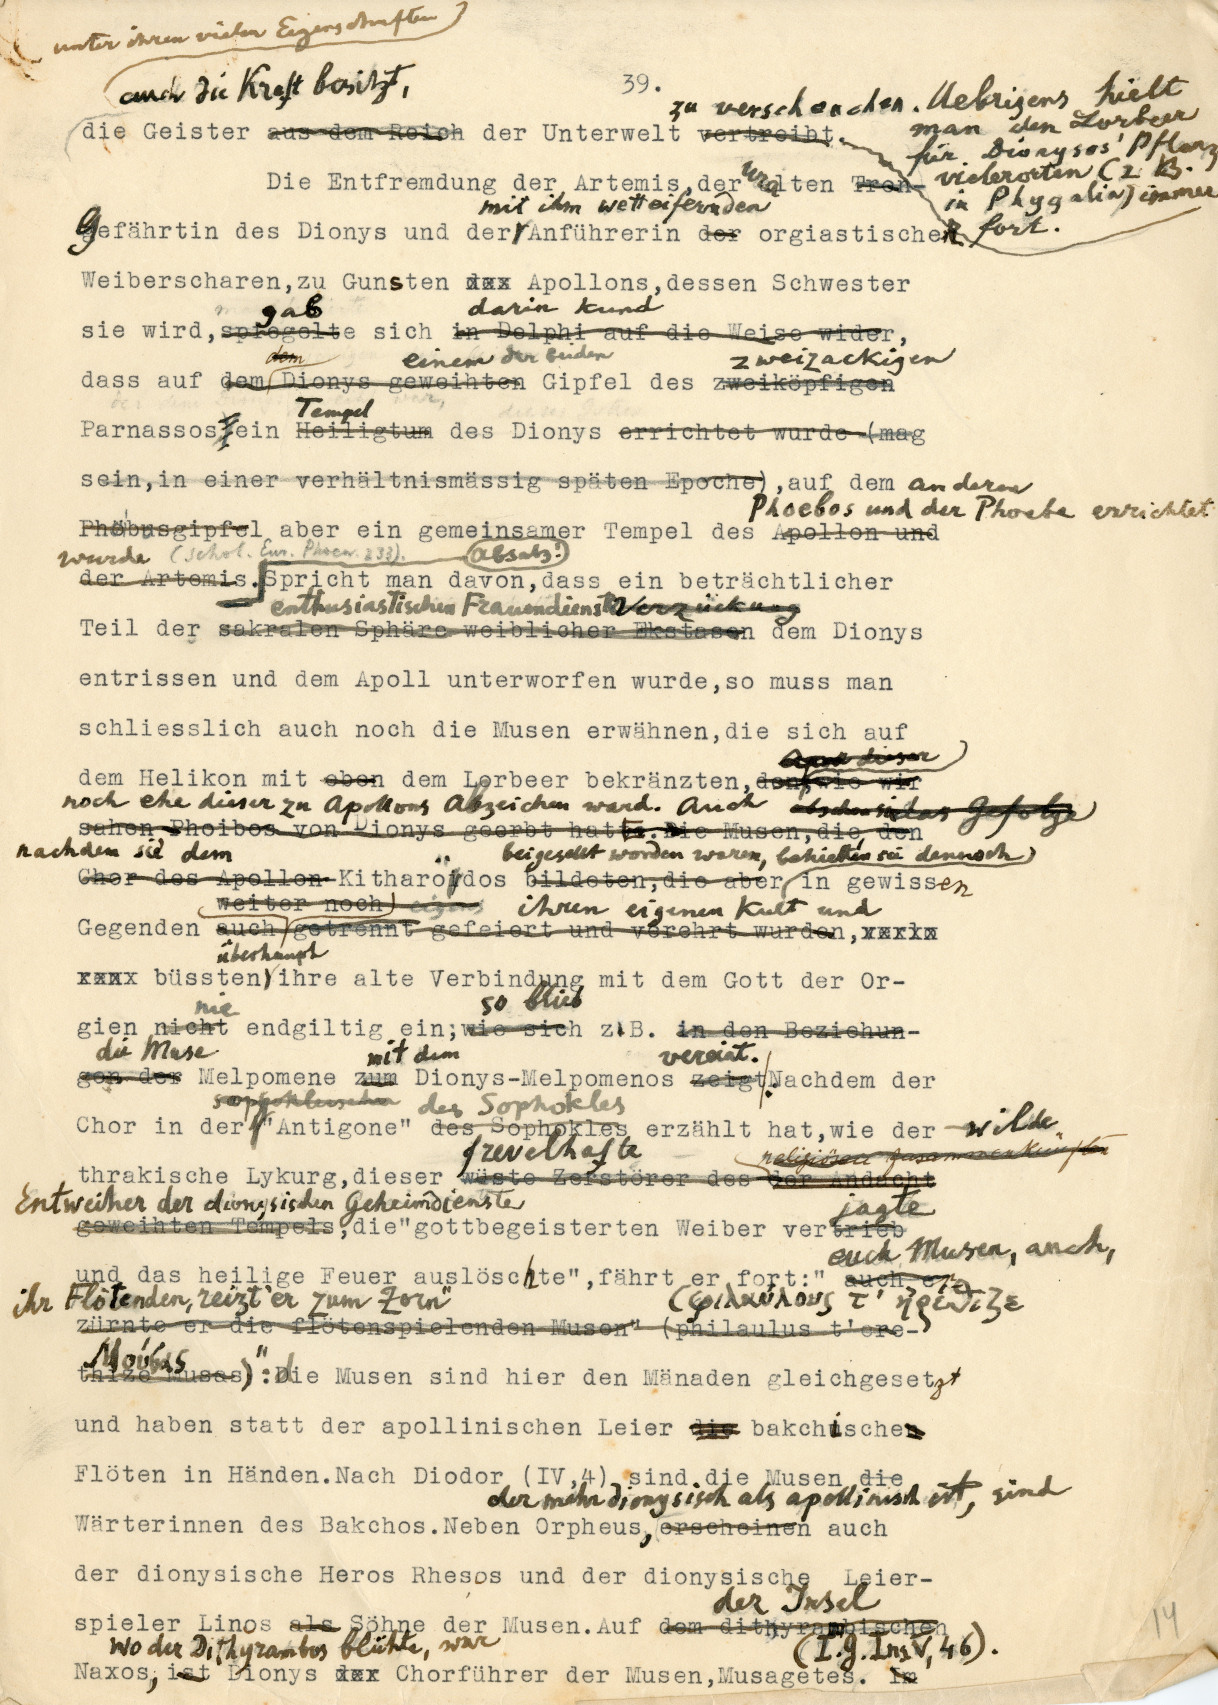 unter ihren vielen Eigenschaften
auch die Kraft besitzt,
39.
zu verscheuchen. Uebrigens hielt
man den Lorbeer
für Dionysos' Pflanz
vielerorten (z. B.
in Phygalia) immer
fort.
die Geister aus dem Reich der Unterwelt vertreibt.
Die Entfremdung der Artemis, der uralten Tron-
mit ihm wetteifernden
Gefährtin des Dionys und der Anführerin der orgiastischen
Weiberscharen, zu Gunsten xxx Apollons, dessen Schwester
gab darin kund
sie wird, spiegelte sich in Delphi auf die Weise wider,
dem einem der beiden zweizackigen
dass auf dem Dionys geweihten Gipfel des zweiköpfigen
Tempel
Parnassos ein Heiligtum des Dionys errichtet wurde (mag
sein, in einer verhältnismässig späten Epoche), auf dem anderen
Phoebos und der Phoebe errichtet
Phöbusgipfel aber ein gemeinsamer Tempel des Apollon und
wurde (Schol. Eur. Phoen. 233). Absatz!
der Artemis. Spricht man davon, dass ein beträchtlicher
enthusiastischen Frauendienste Verzückung
Teil der sakralen Sphäre weiblicher Ekstasen dem Dionys
entrissen und dem Apoll unterworfen wurde, so muss man
schliesslich auch noch die Musen erwähnen, die sich auf
dieser
dem Helikon mit eben dem Lorbeer bekränzten, den, wie wir
noch ehe dieser zu Apollons Abzeichen ward. Auch das Gefolge
sahen Phoibos von Dionys geerbt hatte. Die Musen, die den
nachdem sie dem beigesellt worden waren, behielten sie dennoch
Chor des Apollon Kitharoïdos bildeten, die aber in gewissen
weiter noch eigens ihren eigenen Kult und
Gegenden auch getrennt gefeiert und verehrt wurden, xxxxx
überhaupt
xxxx büssten ihre alte Verbindung mit dem Gott der Or-
nie so blieb
gien nicht endgiltig ein; wie sich z.B. in den Beziehun-
die Muse mit dem vereint.
gen der Melpomene zum Dionys-Melpomenos zeigt. Nachdem der
sophokleischen des Sophokles
Chor in der "Antigone" des Sophokles erzählt hat, wie der wilde
frevelhafte religiösen Zusammenkünften
thrakische Lykurg, dieser wüste Zerstörer des der Andacht
Entweiher der dionysischen Geheimdienste jagte
geweihten Tempels, die "gottbegeisterten Weiber vertrieb
euch Musen, auch,
und das heilige Feuer auslöschte", fährt er fort:" auch er
ihr Flötenden, reizt er zum Zorn" (φιλαύλους τ' ἠρέθιζε
zürnte er die flötenspielenden Musen" (philaulus t'ere-
Μούσας
thize Musas)": die Musen sind hier den Mänaden gleichgesetzt
und haben statt der apollinischen Leier die bakchische
Flöten in Händen. Nach Diodor (IV,4) sind die Musen die
der mehr dionysisch als apollinisch ist, sind
Wärterinnen des Bakchos. Neben Orpheus, erscheinen auch
der dionysische Heros Rhesos und der dionysische Leier-
der Insel
spieler Linos als Söhne der Musen. Auf dem dithyrambischen
wo der Dithyrambos blühte, war (I.G.Ins V, 46).
Naxos, ist Dionys xxx Chorführer der Musen, Musagetes. Im
14